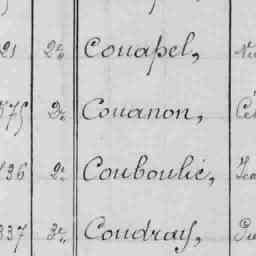 21 2e Couapel,
375 2e Couanon,
136 2e Couboulic,
337 3e Coudray,